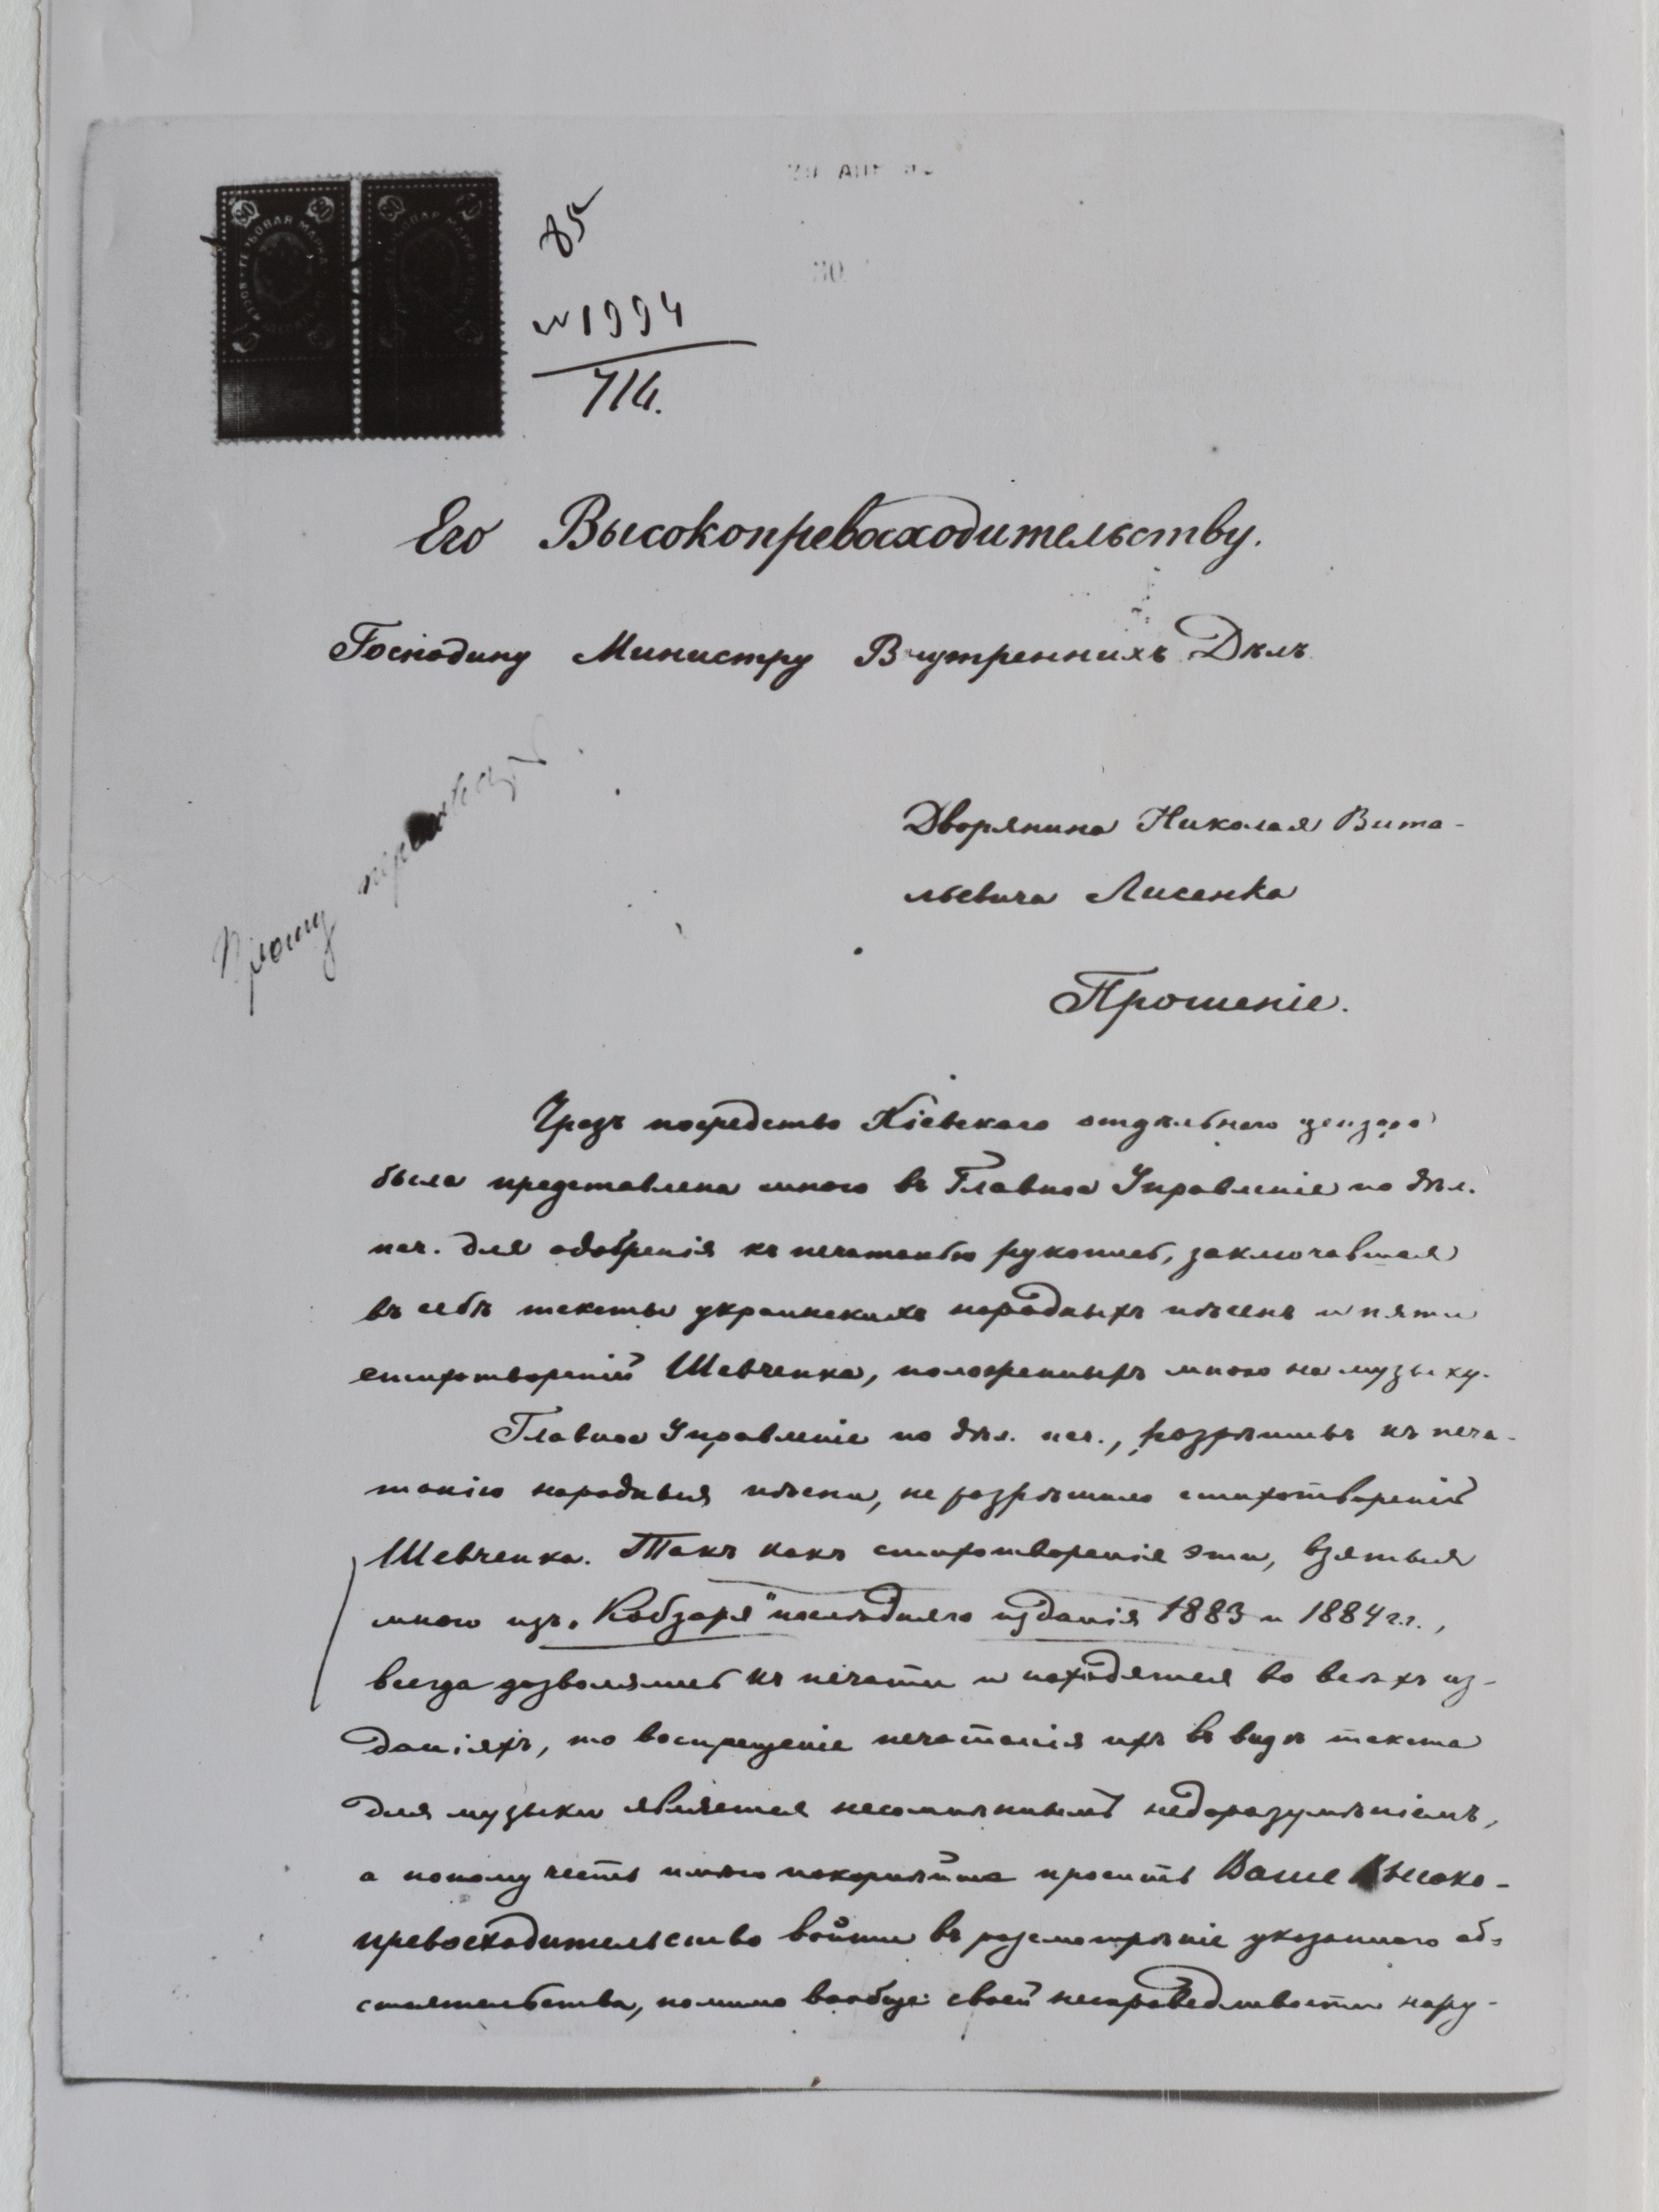 ГЕРБОВАЯ МАРКА
85
№ 1994
714.
Его Высокопревосходительству.
Господину Министру Внутреннихъ Дѣлъ
Прошу
Дворянина Николая Вита-
льевича Лисенка
Прошеніе.
Чрезъ посредство Кіевскаго отдѣльнаго цензора
была представлена мною въ Главное Управленіе по дѣл.
печ. для одобренія къ печатанью рукопись, заключавшая
въ себѣ тексты украинскихъ народныхъ пѣсенъ и пяти
стихотвореній Шевченка, положенныхъ мною на музыку.
Главное Управленіе по дѣл. печ., разрѣшивъ къ печа-
танію народныя пѣсни, не разрѣшило стихотвореній
Шевченка. Такъ какъ стихотворенія эти, взятыя
мною изъ „Кобзаря" послѣдняго изданія 1883 и 1884 г.г.,
всегда дозволялись къ печати и находятся во всѣхъ из-
даніяхъ, то воспрещеніе печатанія ихъ въ видѣ текста
для музыки является несомнѣннымъ недоразумѣніемъ,
а потому честь имѣю покорнѣйше просить Ваше Высоко-
превосходительство войти въ разсмотрѣніе указаннаго об-
стоятельства, помимо вообще своей несправедливости нару-